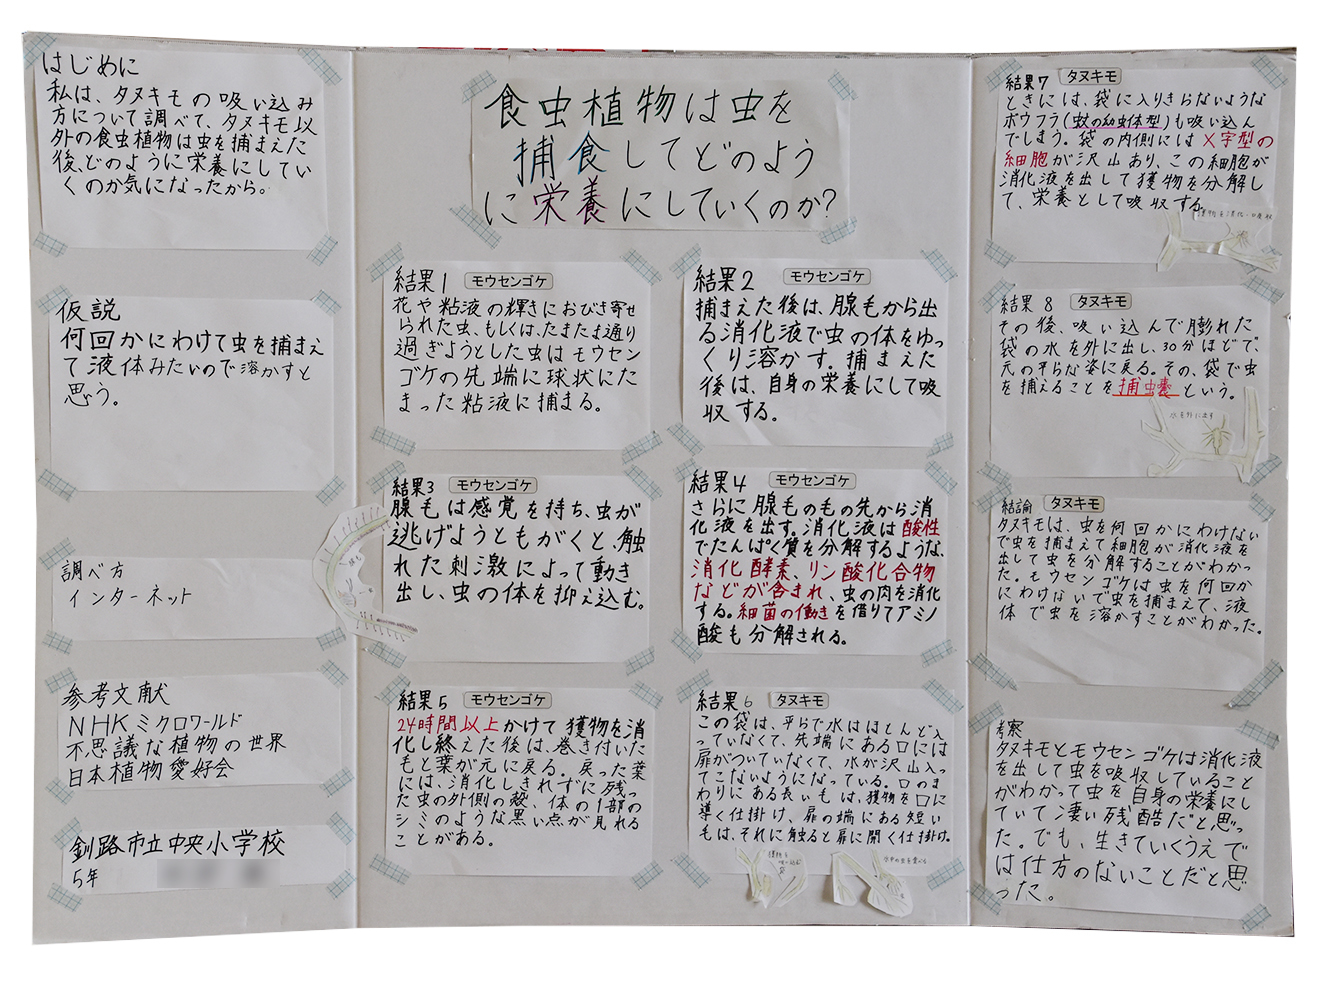 はじめに
私は、タヌキモの吸い込み
方について調べて、タヌキモ以
外の食虫植物は虫を捕まえた
後、どのように栄養にしてい
くのか気になったから。
仮説
何回かにわけて虫を捕まえ
て液体みたいので溶かすと
思う。
調べ方
インターネット
参考文献
NHKミクロワールド
不思議な植物の世界
日本植物愛好会
釧路市立中央小学校
5年
食虫植物は虫を
捕食してどのよう
に栄養にしていくのか?
結果1 モウセンゴケ
花や粘液の輝きにおびき寄せ
られた虫、もしくは、たまたま通り
過ぎようとした虫はモウセン
ゴケの先端に球状にた
まった粘液に捕まる。
結果2 モウセンゴケ
捕まえた後は、腺毛から出
る消化液で虫の体をゆっ
くり溶かす。捕まえた
後は、自身の栄養にして吸
収する。
結果3 モウセンゴケ
腺毛は感覚を持ち、虫が
逃げようともがくと、触
れた刺激によって動き
出し、虫の体を抑え込む。
結果4 モウセンゴケ
さらに腺毛のもの先から消
化液を出す。消化液は酸性
でたんぱく質を分解するような、
消化酵素、リン酸化合物
などが含まれ、虫の肉を消化
する。細菌の働きを借りてアミノ
酸も分解される。
結果5 モウセンゴケ
24時間以上かけて獲物を消
化し終えた後は、巻き付いた
毛と葉が元に戻る。戻った葉
には、消化しきれずに残っ
た虫の外側の殻、体の1部の
シミのような黒い点が見れる
ことがある。
結果6 タヌキモ
この袋は、平らで水はほとんど入
っていなくて、先端にある口には
扉がついていなくて、水が沢山入っ
てこないようになっている。口のま
わりにある長いもは、獲物を口に
導く仕掛け、扉の端にある短い
毛は、それに触ると扉に開く仕掛け。
水中の虫を食べる
結果7 タヌキモ
ときには、袋に入りきらないような
ボウフラ(蚊の幼虫体型)も吸い込ん
でしまう。袋の内側にはX字型の
細胞が沢山あり、この細胞が
消化液を出して獲物を分解し
て、栄養として吸収する。
獲物を消化・吸収
結果8 タヌキモ
その後、吸い込んで膨れた
袋の水を外に出し、30分ほどで、
元の平らな姿に戻る。その、袋で虫
を捕えることを捕虫嚢という。
水を外に出す
結論 タヌキモ
タヌキモは、虫を何回かにわけない
で虫を捕まえて細胞が消化液を
出して虫を分解することがわかっ
た。モウセンゴケは虫を何回か
にわけないで虫を捕まえて、液
体で虫を溶かすことがわかった。
考察
タヌキモとモウセンゴケは消化液
を出して虫を吸収していること
がわかって虫を自身の栄養にし
ていて凄い残酷だと思っ
た。でも、生きていくうえで
は仕方のないことだと思
った。